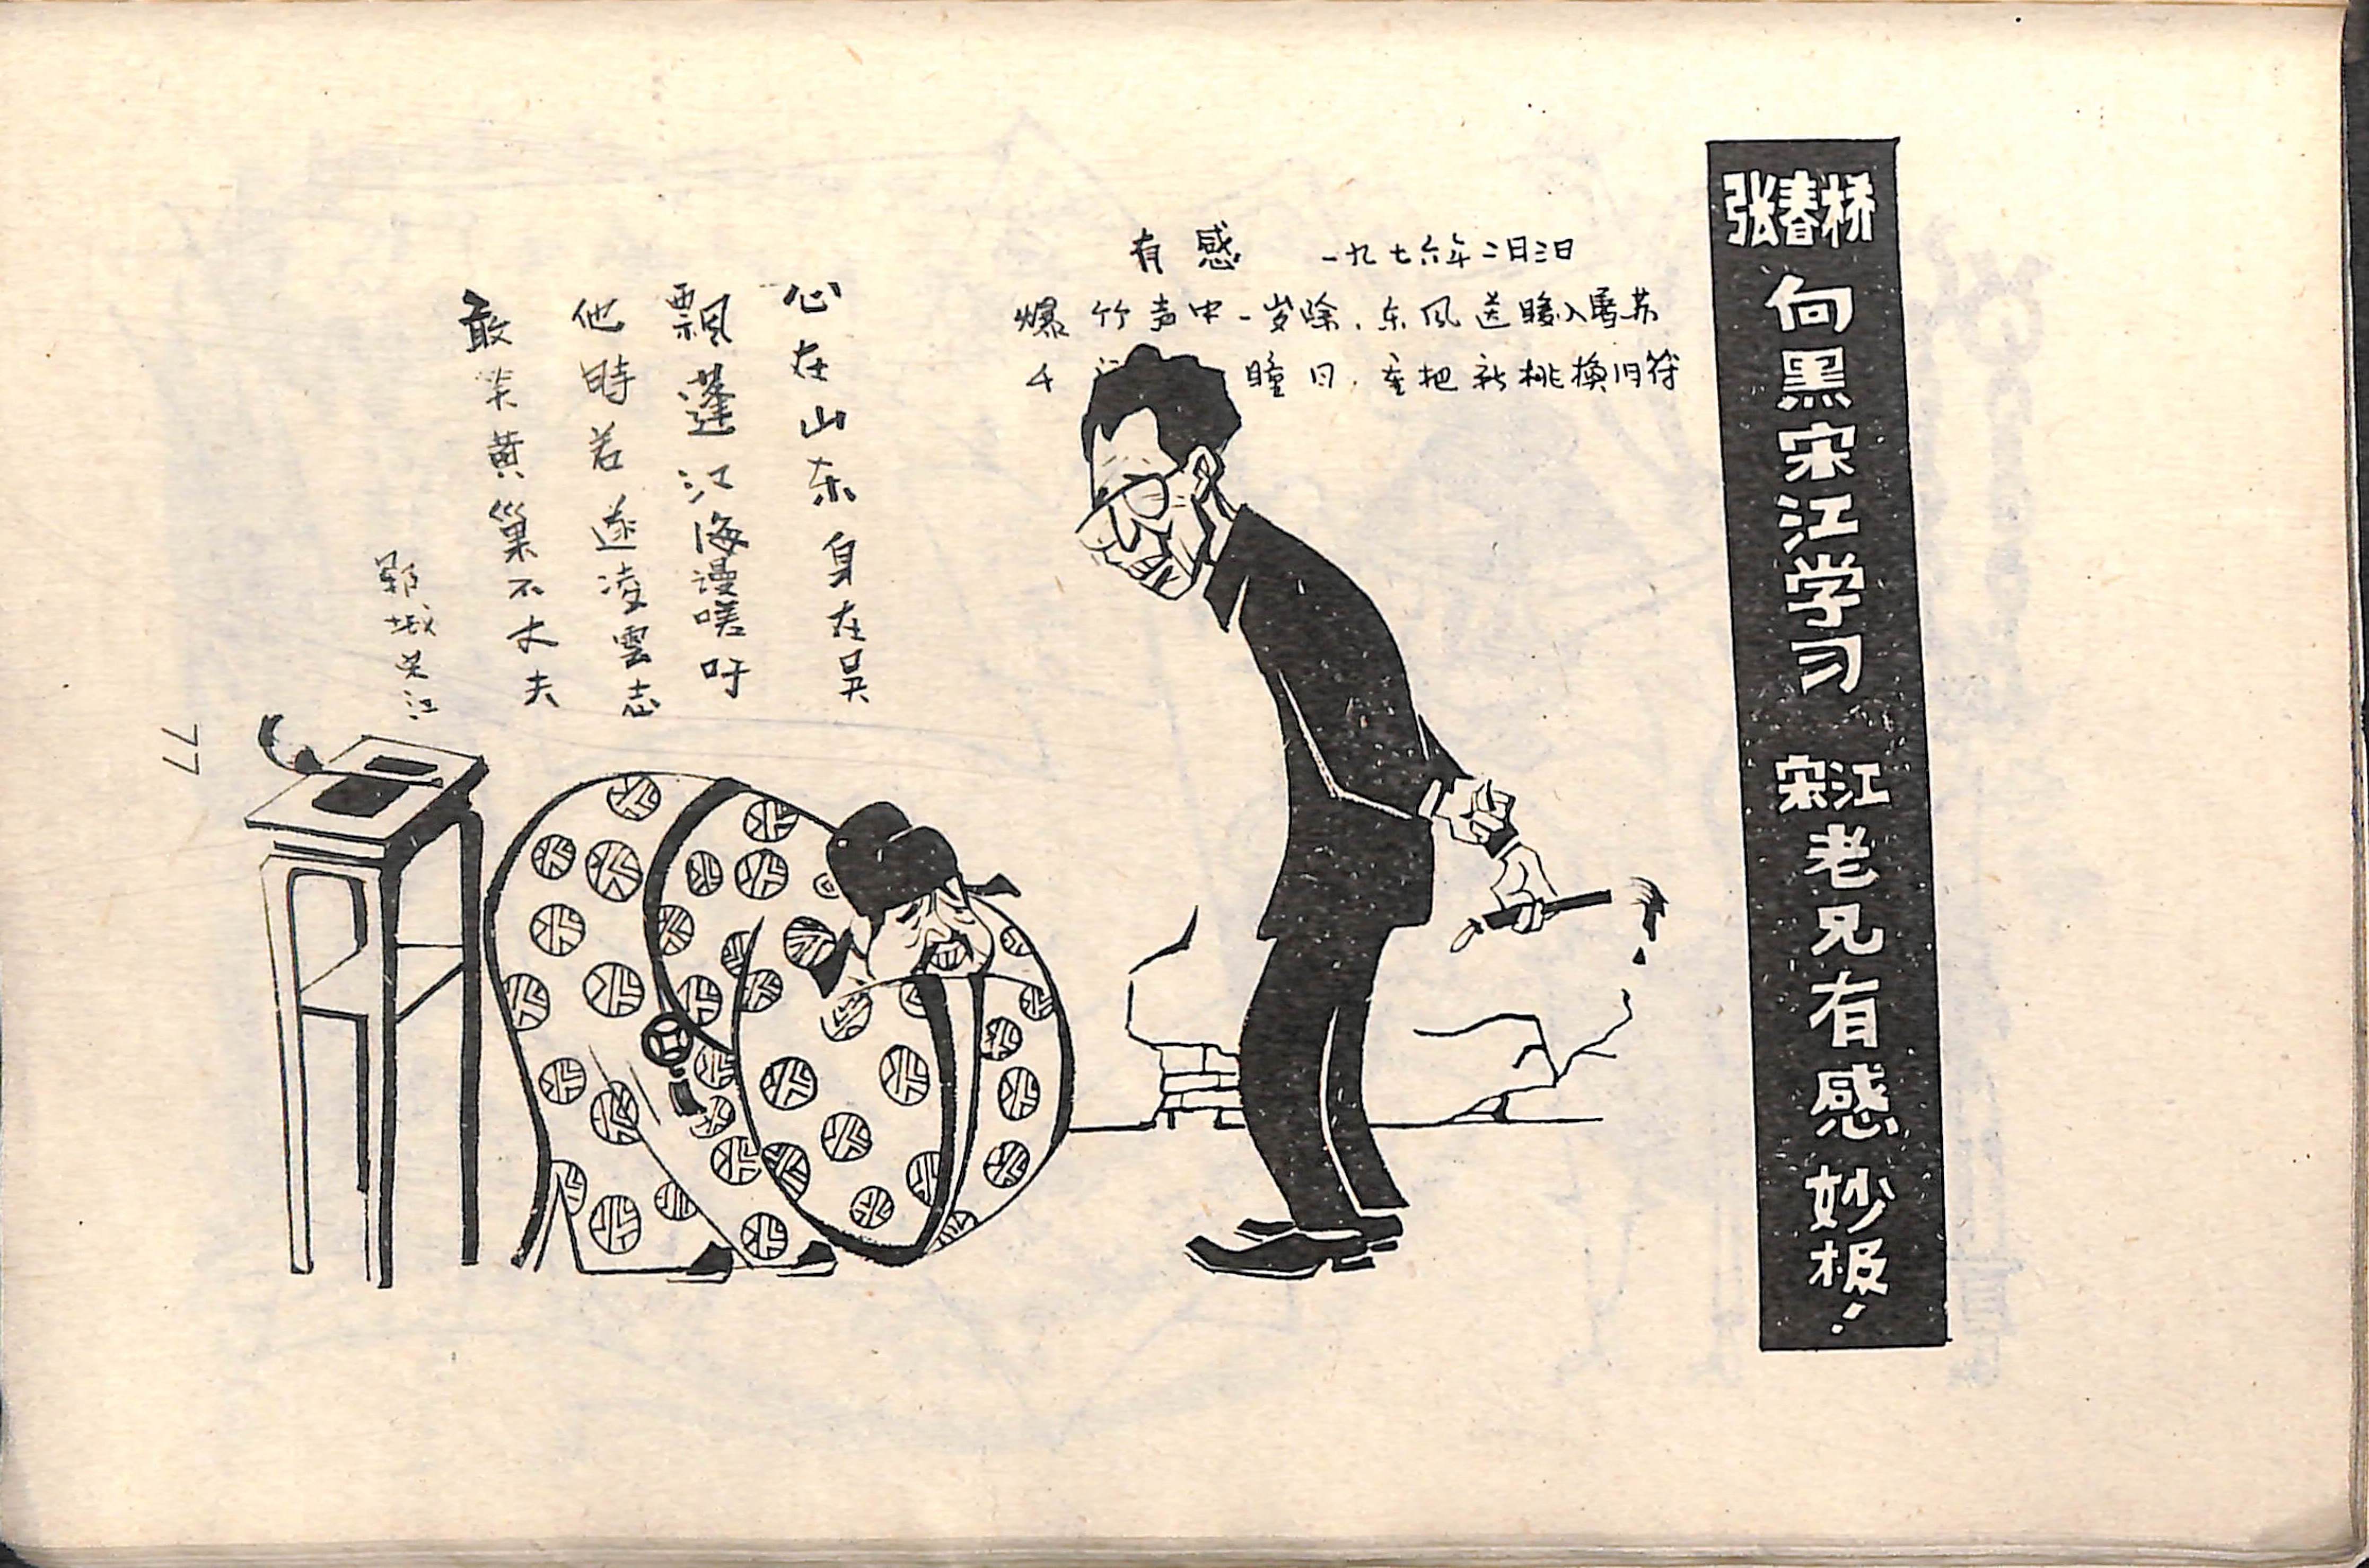 张春桥
向黑宋江学习
宋江老兄有感妙极!
有感 一九七六年二月三日
爆竹声中一岁除,东风送暖入屠苏
千 瞳日,重把新桃换旧符
心在山东身在吴
飘蓬江海漫嗟吁
他時若遂凌雲志
敢笑黄巢不丈夫
郓城宋江
77